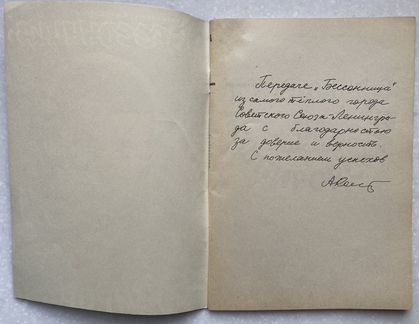 Передаче „Бессонница"
из самого тёплого города
Советского Союза Ленингра-
да с благодарностью
за доверие и верность.
С пожеланием успехов